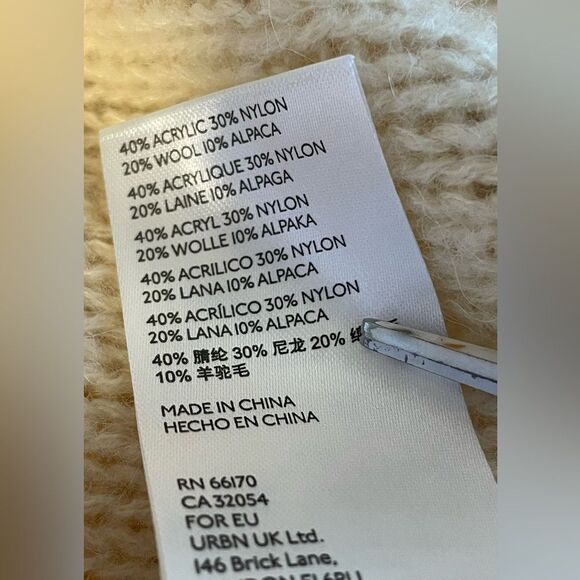 40% ACRYLIC 30% NYLON
20% WOOL 10% ALPACA
40% ACRYLIQUE 30% NYLON
20% LAINE 10% ALPAGA
40% ACRYL 30% NYLON
20% WOLLE 10% ALPAKA
40% ACRILICO 30% NYLON
20% LANA 10% ALPACA
40% ACRÍLICO 30% NYLON
20% LANA 10% ALPACA
40% 腈纶 30% 尼龙 20%
10% 羊驼毛
MADE IN CHINA
HECHO EN CHINA
RN 66170
CA 32054
FOR EU
URBN UK Ltd.
146 Brick Lane,